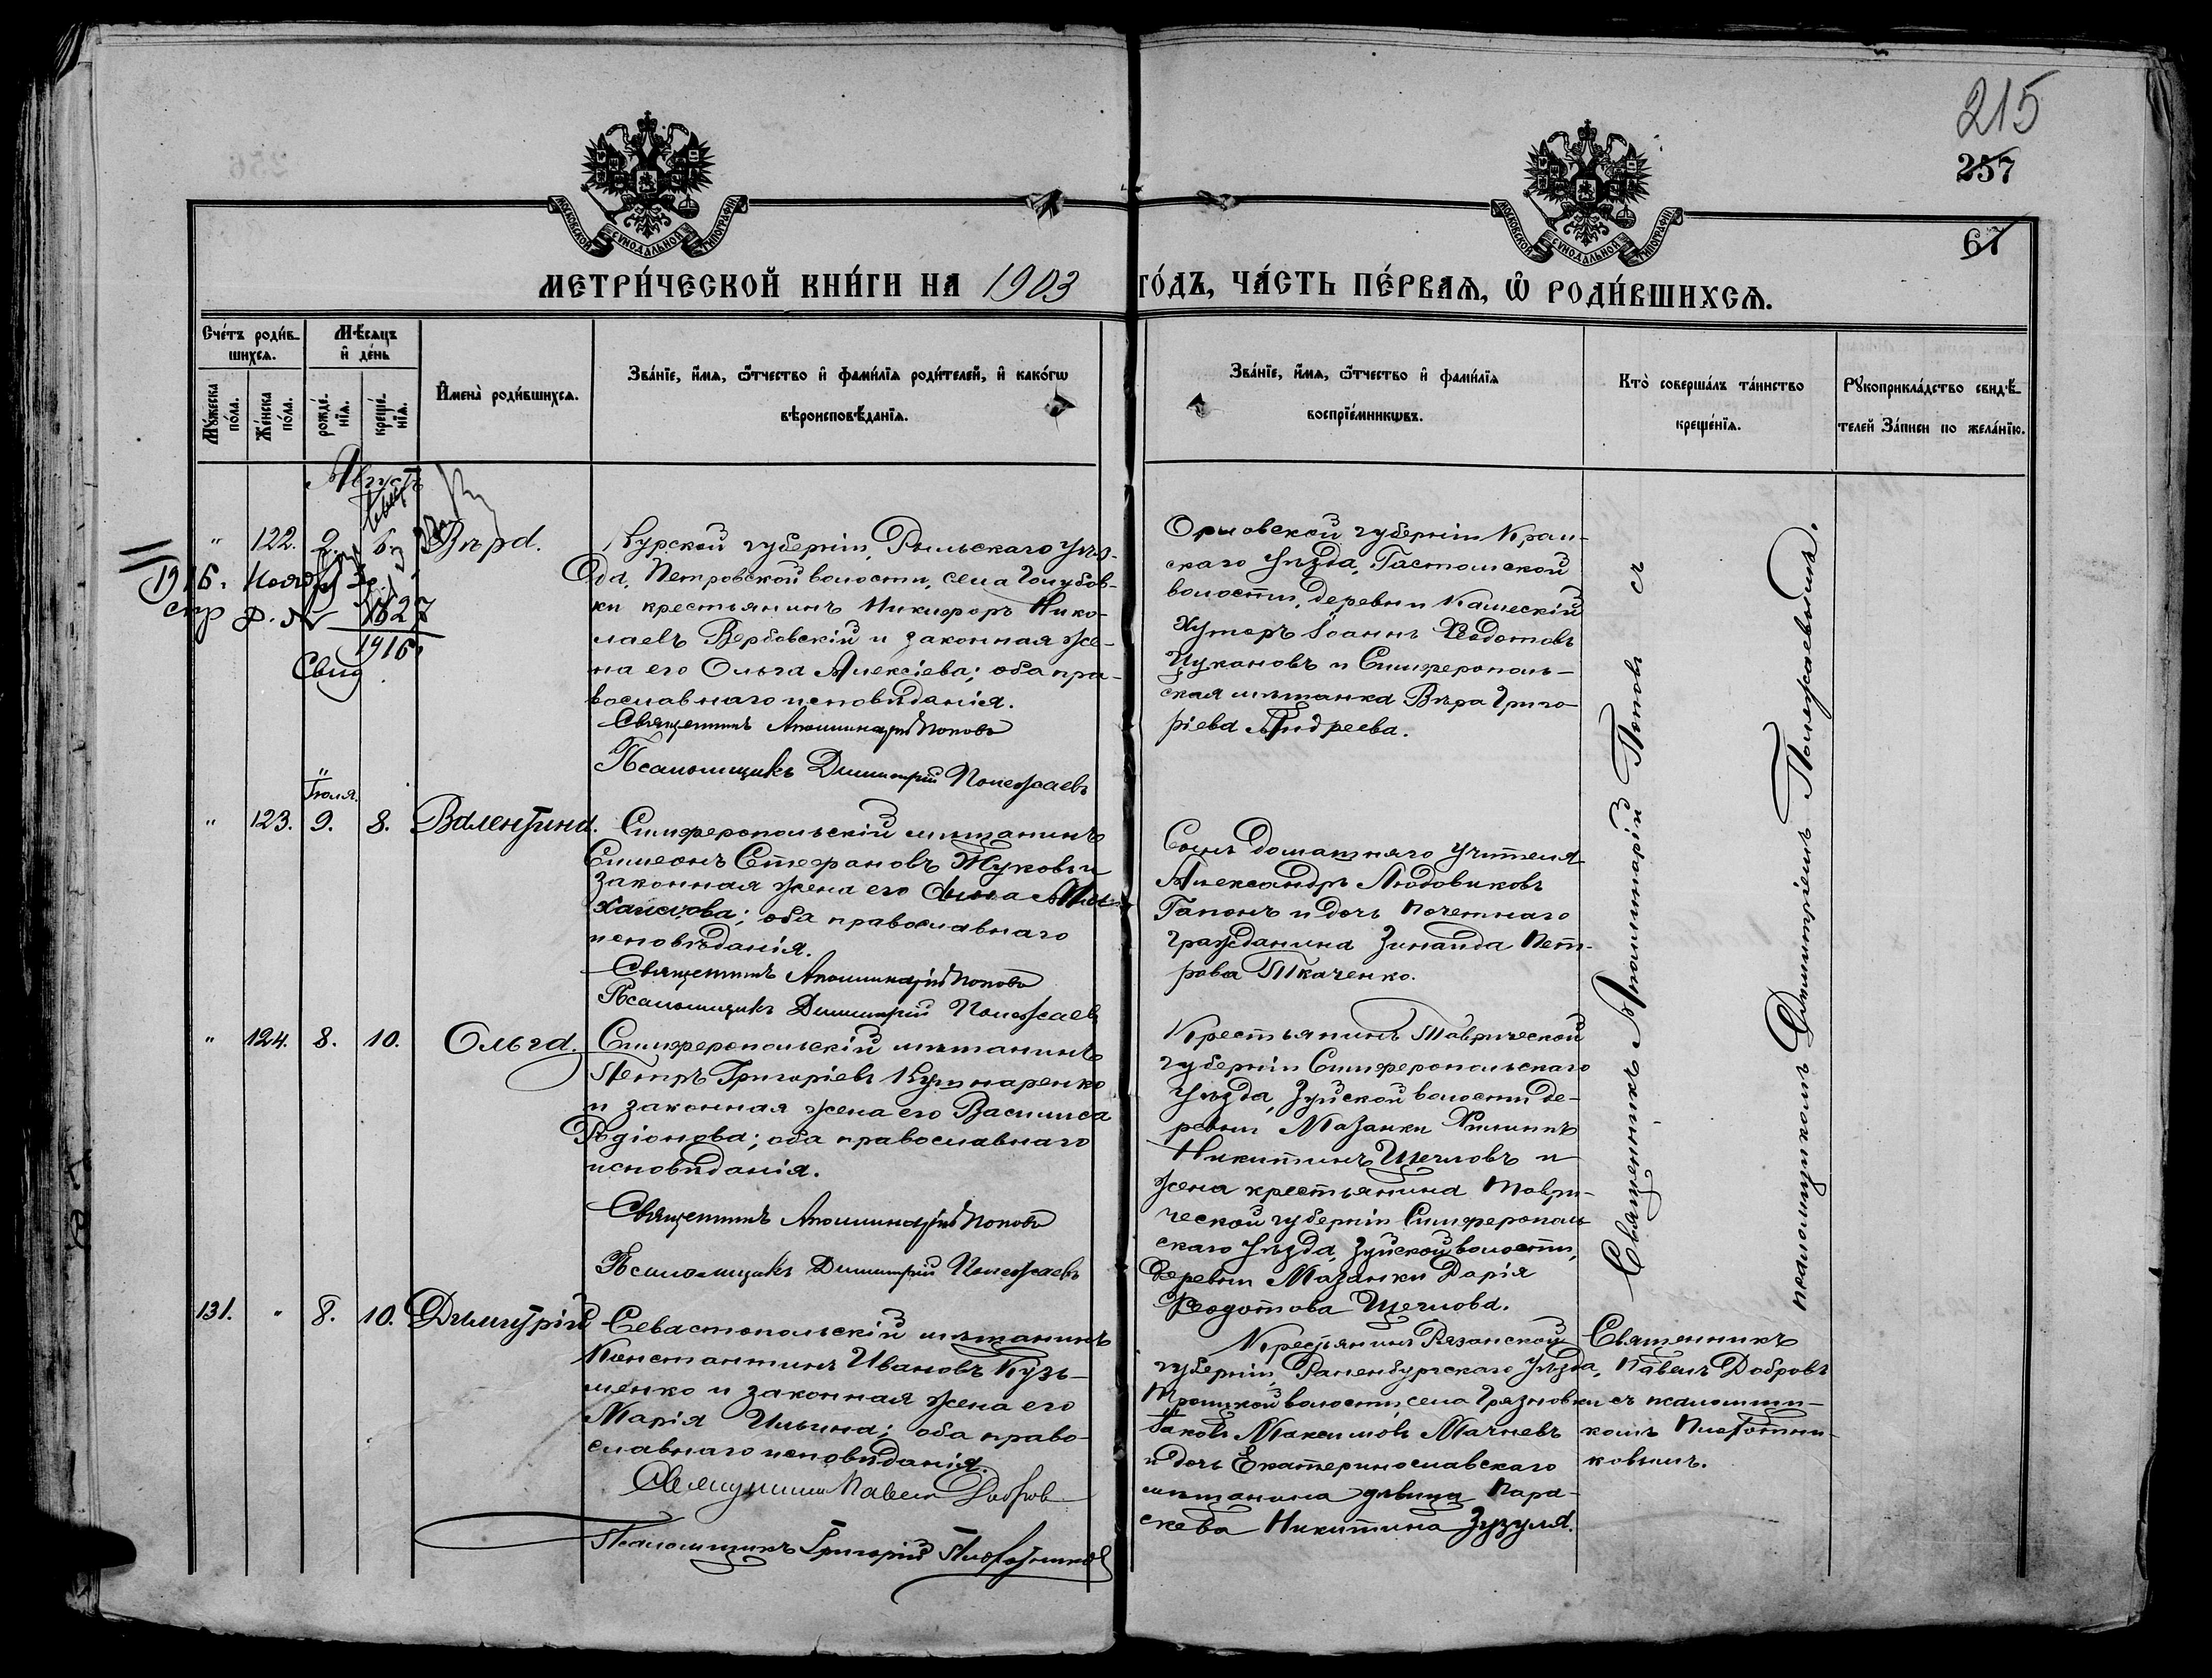 215
257
67
МОСКОВСКОЙ СѴНОДАЛЬНОЙ ТИПОГРАФІИ
МОСКОВСКОЙ СѴНОДАЛЬНОЙ ТИПОГРАФІИ
МЕТРИ́ЧЕСКОЙ КНИ́ГИ НА 1903 ГО́ДЪ, ЧА́СТЬ ПЕ́РВАѦ, Ѡ҆ РОДИ́ВШИХСѦ.
Сче́тъ роди́в-
шихсѧ.
Мꙋ́жеска по́ла.
Же́нска по́ла.
Мѣ́сѧцъ
и҆ де́нь
рожде́-
нїѧ.
креще́-
нїѧ.
И҆мена̀ роди́вшихсѧ.
Зва́нїе, и҆́мѧ, ѻ҆́тчество и҆ фами́лїѧ роди́телей, и҆ како́гѡ
вѣроисповѣ́данїѧ.
Зва́нїе, и҆́мѧ, ѻ҆́тчество и҆ фами́лїѧ
воспрїе́мникѡвъ.
Кто̀ соверша́лъ та́инство
креще́нїѧ.
Рꙋкоприкла́дство свидѣ́-
телей за́писи по жела́нїю.
Августъ
" 122. 2. 6. Вѣра.
1916. Ноября
1627
1916
Свид
Курской губерніи, Рыльскаго уѣз-
да, Петровской волости, села Голубов-
ки крестьянинъ Никифоръ Нико-
лаевъ Вербовскій и законная же-
на его Ольга Алексіева; оба пра-
вославнаго исповѣданія.
Священникъ Аполлинарій Поповъ
Псаломщикъ Димитрій Полежаевъ
Орловской губерніи Кром-
скаго уѣзда, Гастомской
волости, деревни
Хуторъ Іоаннъ Ѳеодотовъ
Цукановъ и Симферополь-
ская мѣщанка Вѣра Григо-
ріева Андреева.
Іюля.
" 123. 9. 8. Валентина.
Симферопольскій мѣщанинъ
Симеонъ Стефановъ Жуковъ и
законная жена его Анна Ми-
хаилова; оба православнаго
исповѣданія.
Священникъ Аполлинарій Поповъ
Псаломщикъ Димитрій Полежаевъ
Сынъ домашняго учителя
Александръ Людовиковъ
Гапонъ и дочь почетнаго
гражданина Зинаида Пет-
рова Ткаченко.
" 124. 8. 10. Ольга.
Симферопольскій мѣщанинъ
Петръ Григоріевъ Кушнаренко
и законная жена его Василиса
Родіонова; оба православнаго
исповѣданія.
Священникъ Аполлинарій Поповъ
Псаломщикъ Димитрій Полежаевъ
Крестьянинъ Таврической
губерніи Симферопольскаго
уѣзда, Зуйской волости де-
ревни Мазанки Филиппъ
Никитинъ Щегловъ и
жена крестьянина Таври-
ческой губерніи Симферополь
скаго уѣзда, Зуйской волости,
деревни Мазанки Дарія
Ѳеодотова Щеглова.
Священникъ Аполлинарій Поповъ съ
псаломщикомъ Димитріемъ Полежаевымъ.
131. " 8. 10. Димитрій
Севастопольскій мѣщанинъ
Константинъ Ивановъ Кузь-
менко и законная жена его
Марія Ильина; оба право-
славнаго исповѣданія.
Священникъ Павелъ Добровъ
Псаломщикъ Григорій Плотниковъ
Крестьянинъ Рязанской
губерніи, Раненбургскаго уѣзда,
Троицкой волости, села Грязновки
Іаковъ Максимовъ Мачневъ
и дочь Екатеринославскаго
мѣщанина дѣвица Пара-
скева Никитина Зузуля.
Священникъ
Павелъ Добровъ
съ псаломщи-
комъ Плотни-
ковымъ.